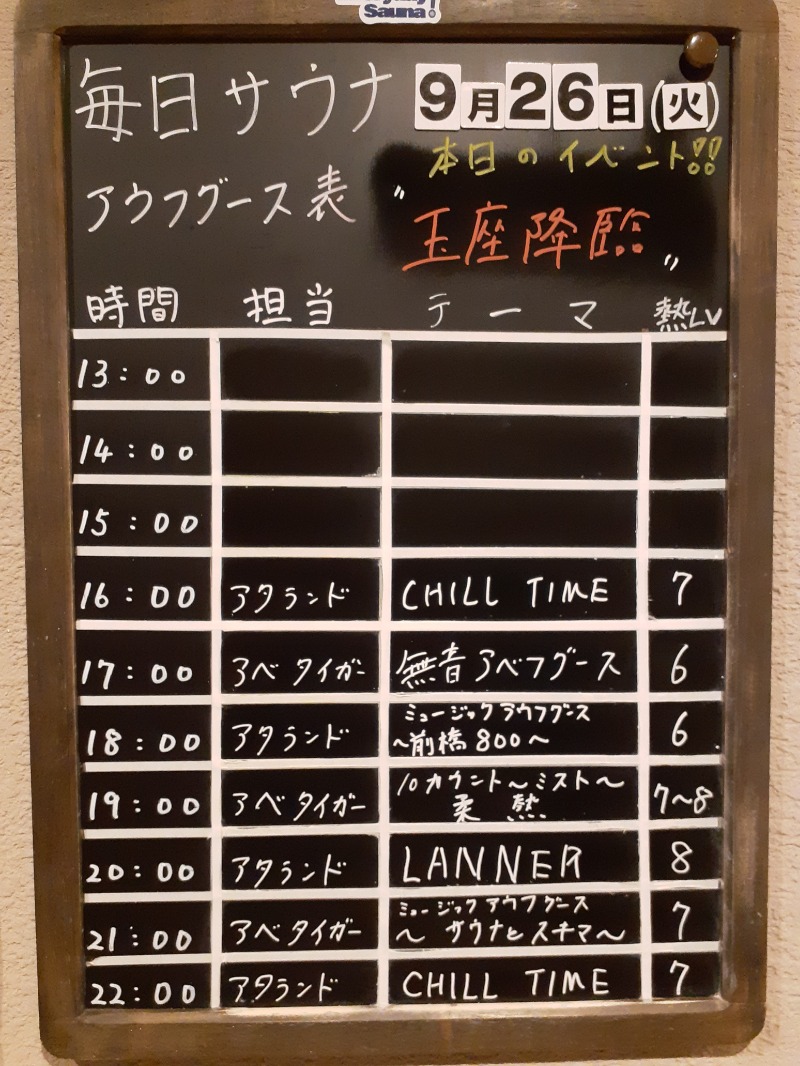 Sauna!
毎日サウナ 9月26日(火)
本日のイベント!!
アウフグース表 "玉座降臨"
時間 担当 テーマ 熱LV
13:00
14:00
15:00
16:00 アタランド CHILL TIME 7
17:00 アベタイガー 無音アベフグース 6
18:00 アタランド ミュージックアウフグース
~前橋800~ 6
19:00 アベタイガー 10カウント~ミスト~
柔熱 7~8
20:00 アタランド LANNER 8
21:00 アベタイガー ミュージックアウフグース
~サウナとスナマ~ 7
22:00 アタランド CHILL TIME 7